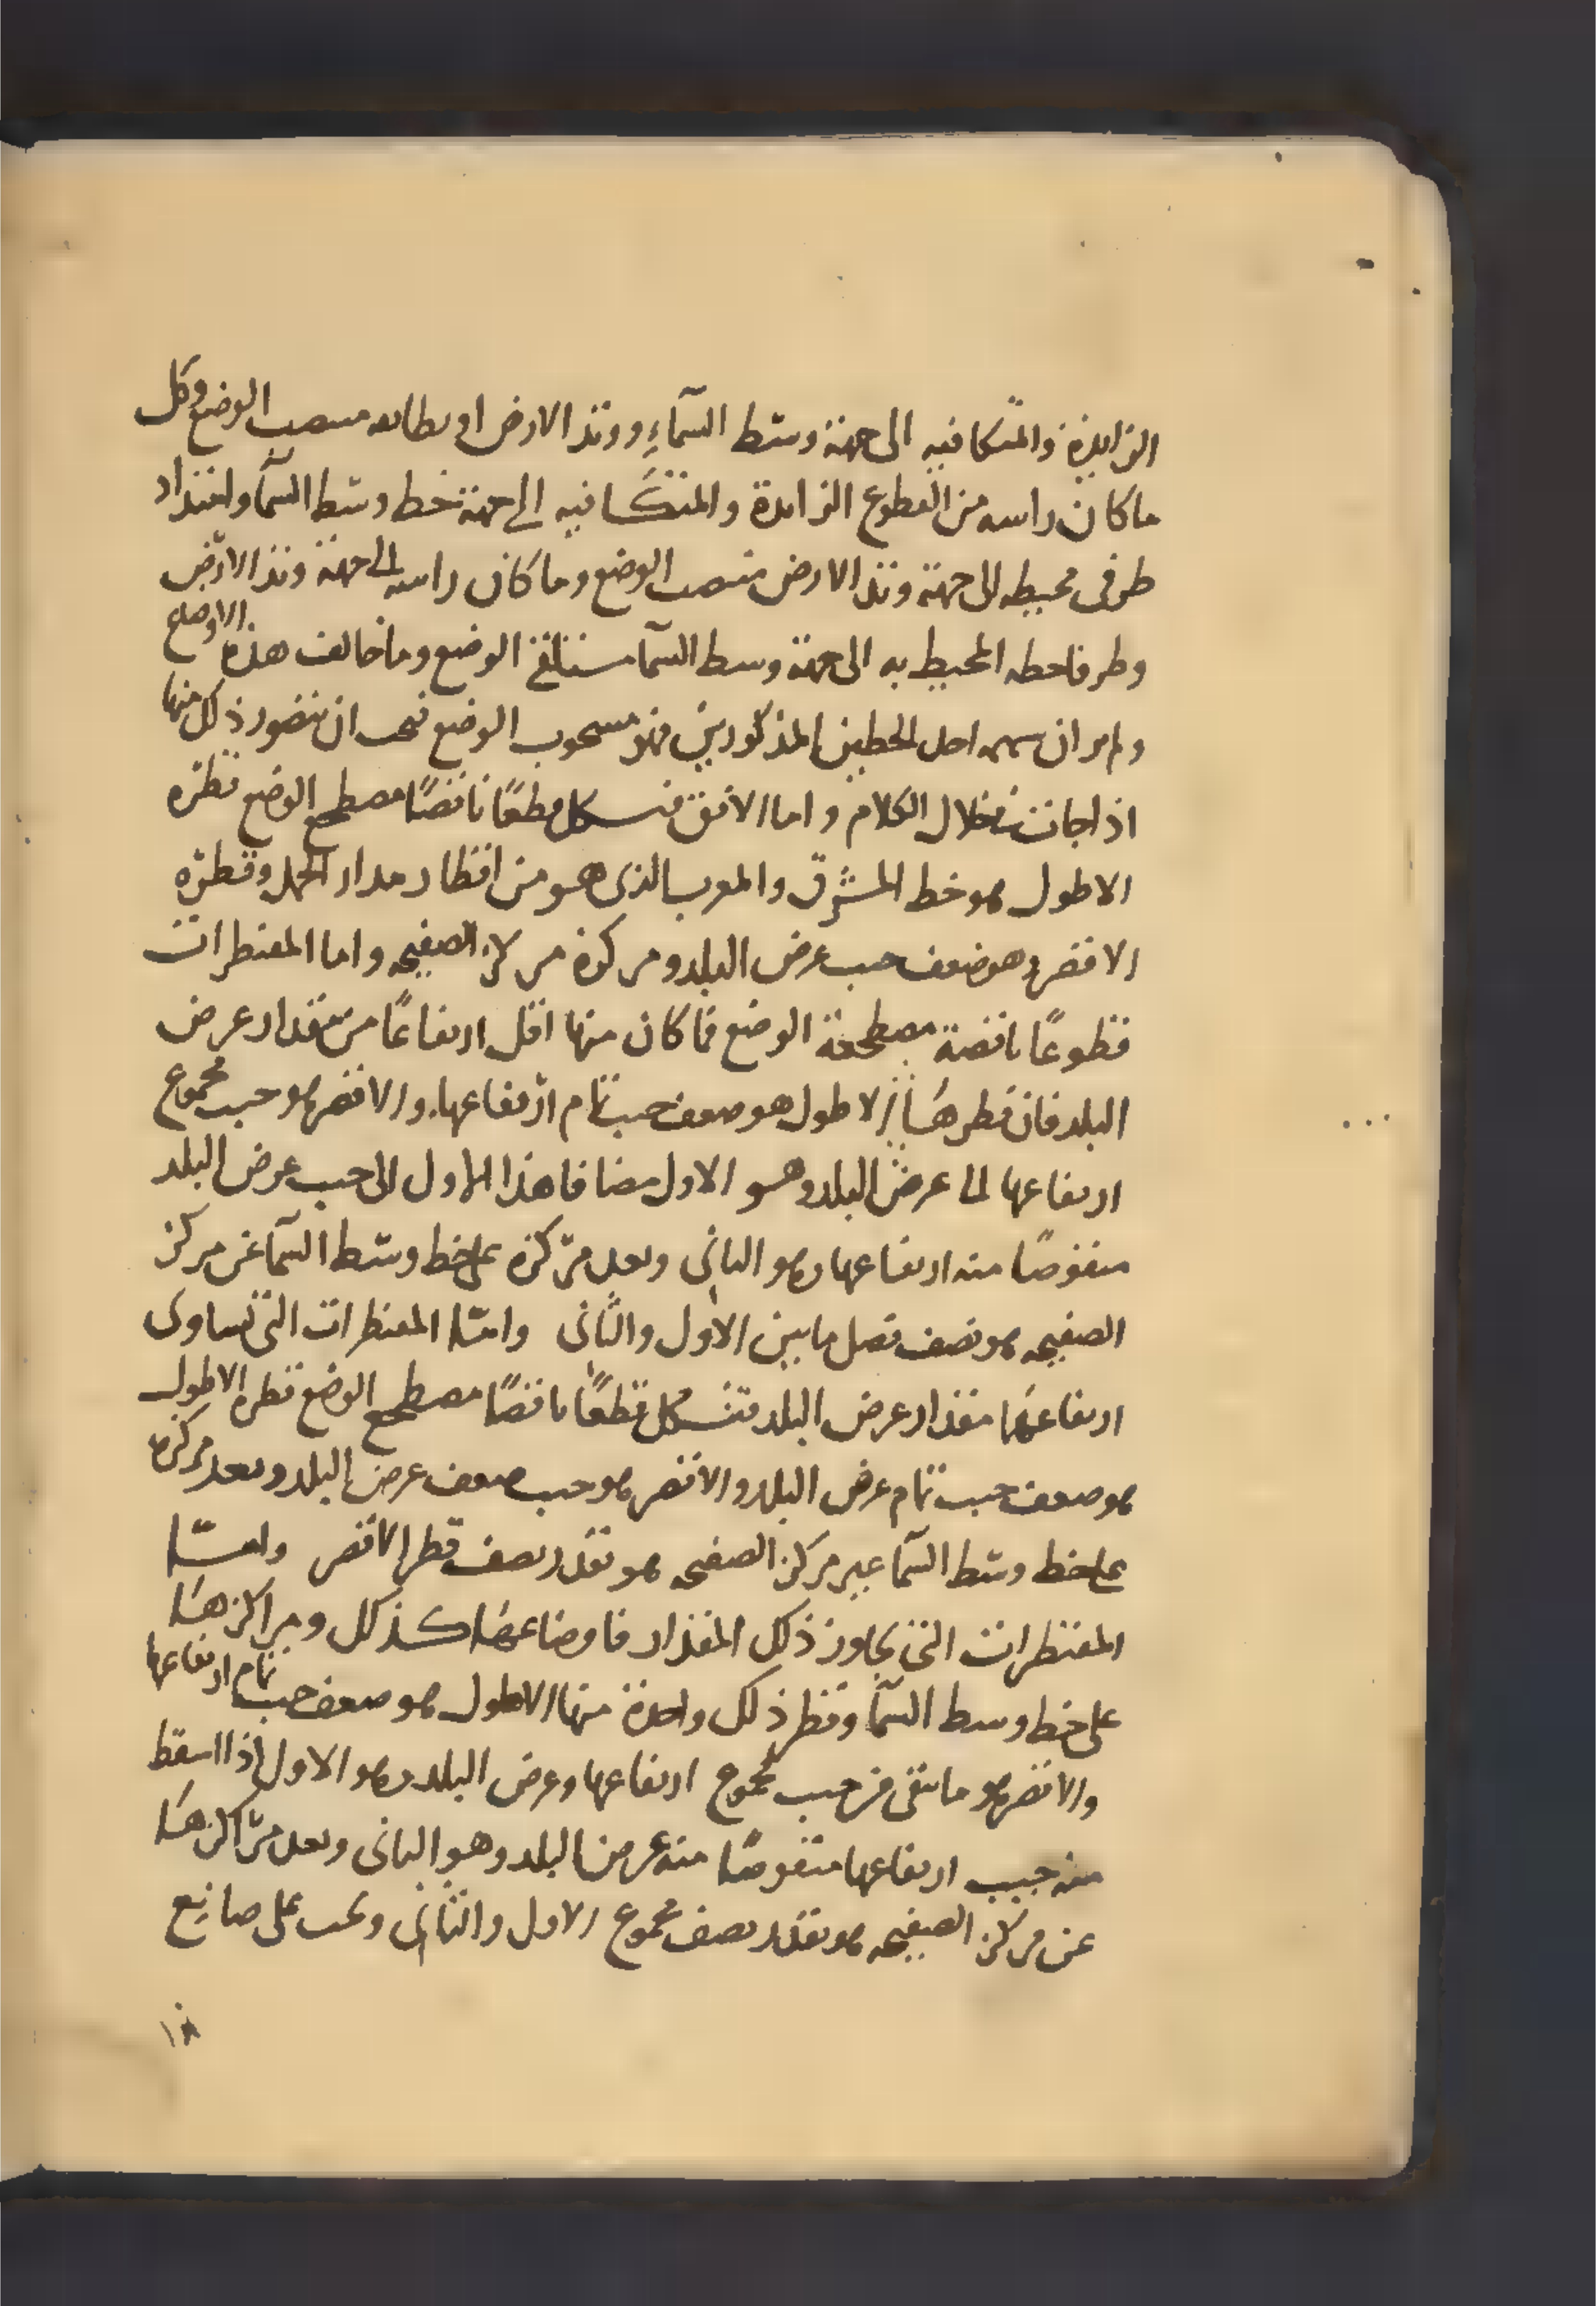 الزايدة والمتكافيه الى جهة وسط السمآءِ ووتد الارض او يطابقه منتصب الوضع وكل
ما كان راسه من القطوع الزايدة والمتكافيه الى جهة خط وسط السمآ وامتداد
طرفى محيطه الى جهة وتد الارض منتصب الوضع وما كان راسه الى جهة وتد الارض
وطرفا خطه المحيط به الى جهة وسط السمآ مستلقى الوضع وما خالف هذه الاوضاع
ولم يوازى سهمه احد الخطين المذكورين فهو مسحوب الوضع فيجب ان يتصور ذلك منها
اذا جات فى خلال الكلام واما الافق فيتشكل قطعًا ناقصًا مصطجع الوضع قطره
الاطول هو خط المشرق والمغرب الذى هو من اقطار مدار الحمل وقطره
الاقصر وهو ضعف جيب عرض البلد ومركزه مركز الصفيحه واما المقنطرات
فقطوعًا ناقصة مصطجعة الوضع فما كان منها اقل ارتفاعًا من مقدار عرض
البلد فان قطرها الاطول هو ضعف جيب تمام ارتفاعها والاقصر هو جيب مجموع
ارتفاعها الى عرض البلد وهو الاول مضافا هذا الاول الى جيب عرض البلد
منقوصًا منه ارتفاعها وهو الثانى وبعد مركزه على خط وسط السمآ عن مركز
الصفيحه هو نصف فضل ما بين الاول والثانى وامّا المقنطرات التى تساوى
ارتفاعها مقدار عرض البلد فتتشكل قطعًا ناقصًا مصطجع الوضع قطره الاطول
هو ضعف جيب تمام عرض البلد والاقصر هو جيب ضعف عرض البلد وبعد مركزه
على خط وسط السمآ عن مركز الصفيحه هو بقدر نصف قطر الاقصر وامّا
المقنطرات التى يجاوز ذلك المقدار فاوضاعها كذلك ومراكزها
على خط وسط السمآ وقطر ذلك واحدة منها الاطول هو ضعف جيب تمام ارتفاعها
والاقصر هو ما يبقى من جيب مجموع ارتفاعها وعرض البلد وهو الاول اذا اسقط
منه جيب ارتفاعها منقوصًا منه عرض البلد وهو الثانى وبعد مراكزها
عن مركز الصفيحه هو بقدر نصف مجموع الاول والثانى ويجب على صانع
١٨